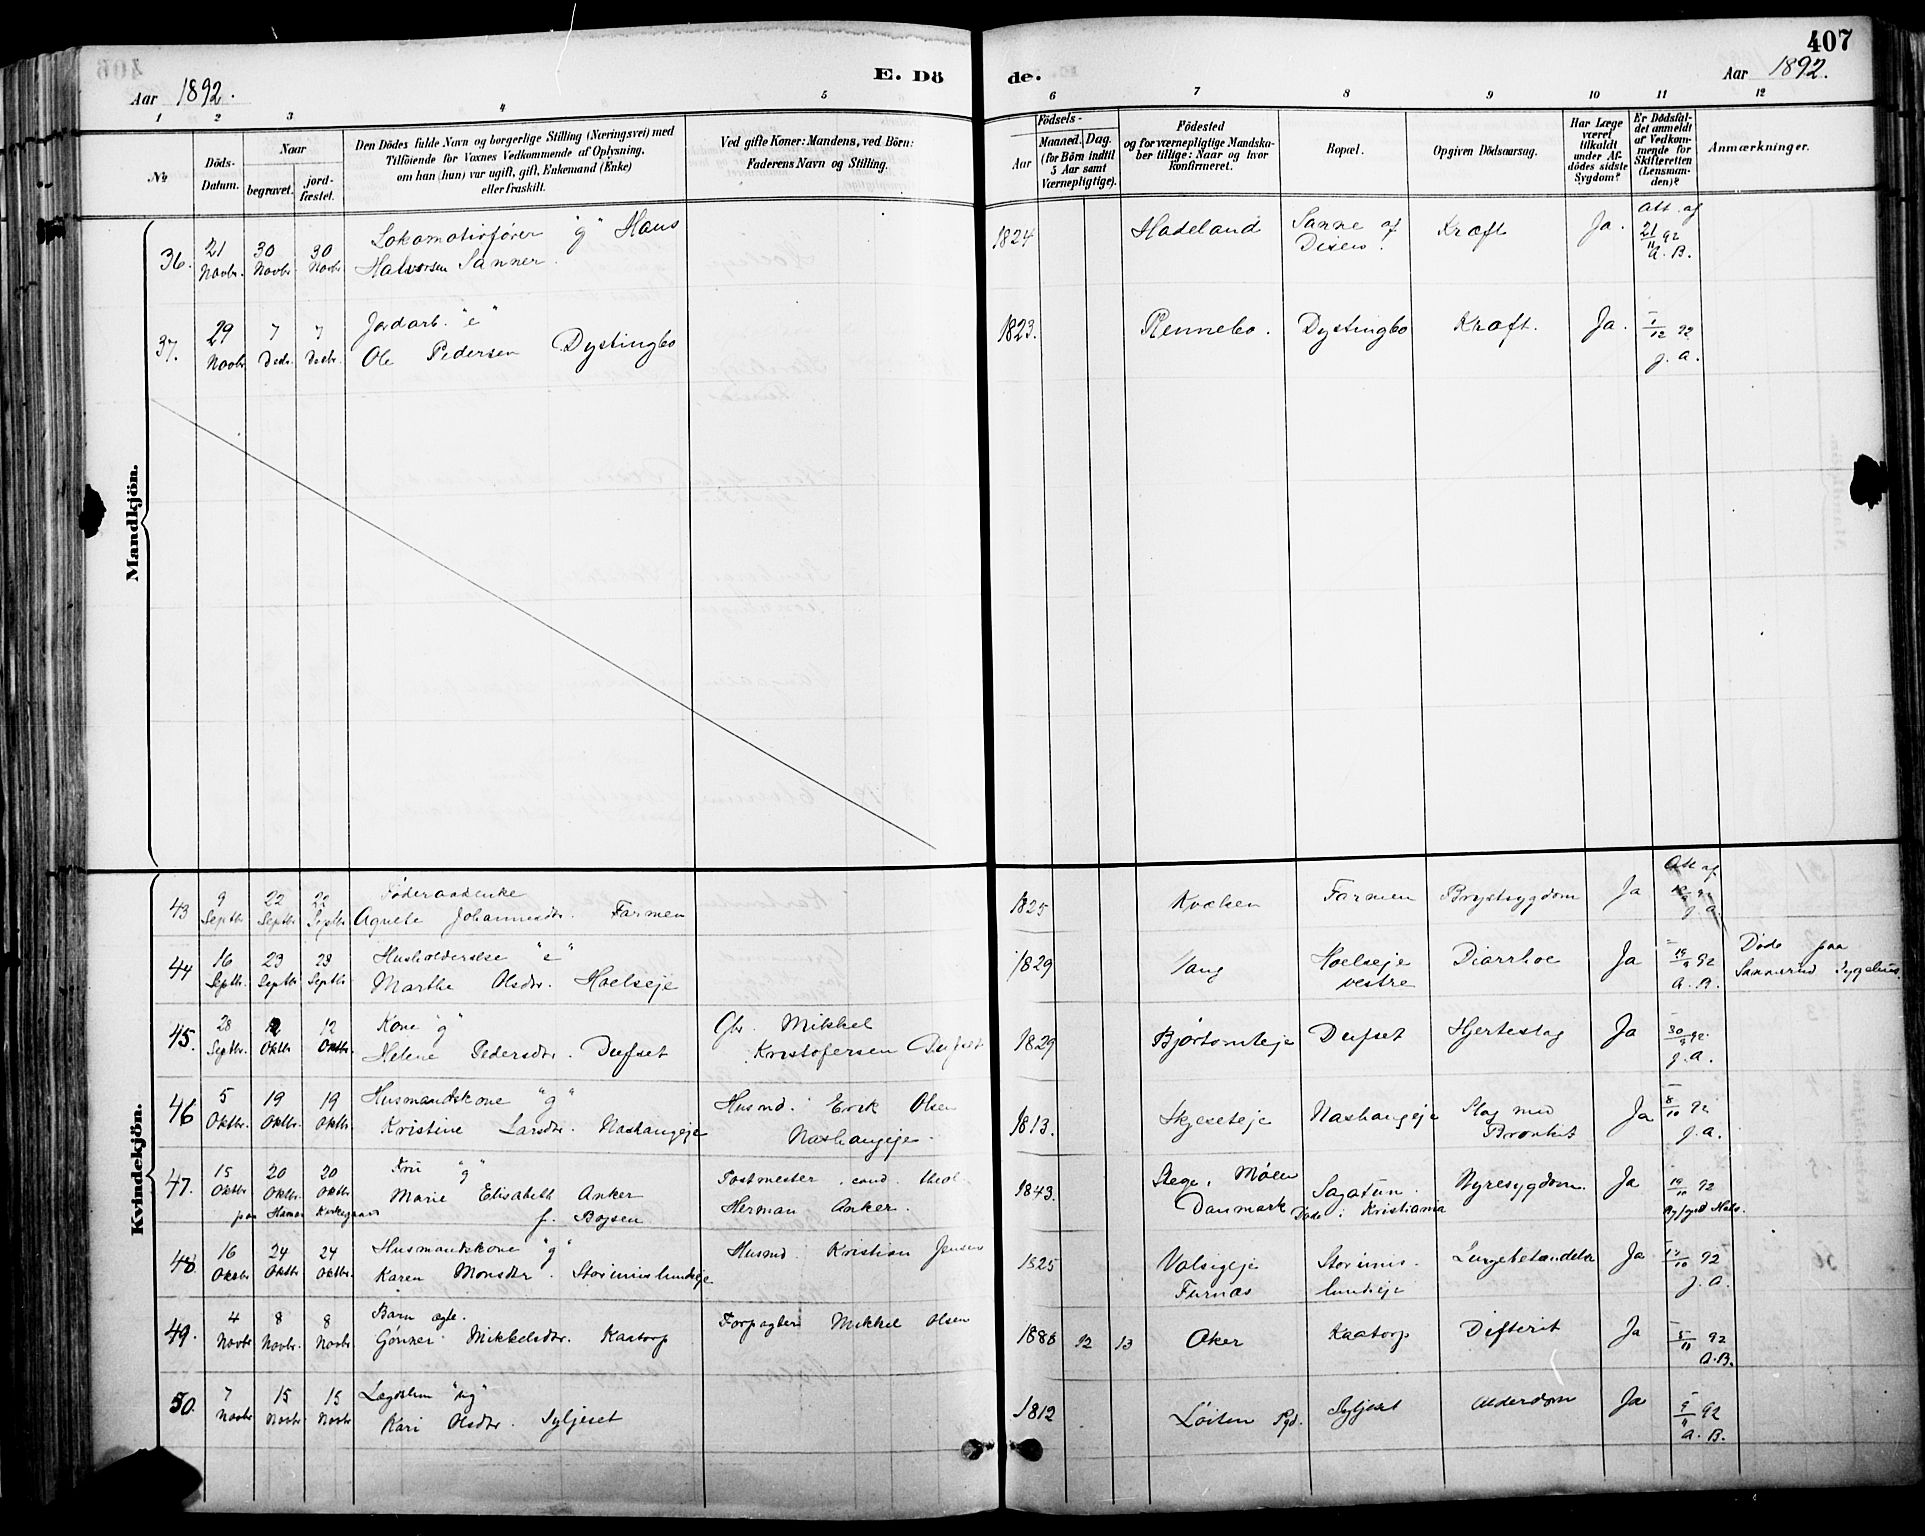 407
Aar 1892.
E. Dö
de.
Aar 1892.
1 2 3 4 5 6 7 8 9 10 11 12
No
Döds-
Datum.
Naar
begravet.
jord-
fæstet.
Den Dödes fulde Navn og borgerlige Stilling (Næringsvei) med
Tilföiende for Voxnes Vedkommende af Oplysning,
om han (hun) var ugift, gift, Enkemand (Enke)
eller fraskilt.
Ved gifte Koner: Mandens, ved Börn:
Faderens Navn og Stilling.
Födsels-
Aar
Maaned. Dag.
(for Börn indtil
5 Aar samt
Værnepligtige).
Födested
og for værnepligtige Mandska-
ber tillige: Naar og hvor
konfirmeret.
Bopæl.
Opgiven Dödsaarsag.
Har Læge
været
tilkaldt
under Af-
dödes sidste
Sygdom?
Er Dödsfal-
det anmeldt
af Vedkom-
mende for
Skifteretten
(Lensman-
den)?
Anmærkninger.
Mandkjön.
36. 21 Novbr. 30 Novbr. 30 Novbr. Lokomotivfører "g" Hans
Halvorsen Sanner.
1824 Hadeland Sanne af
Disen. Kræft Ja. Att. af
21/11 92
A. B.
37. 29 Novbr. 7 Decbr. 7 Decbr. Jordarb. "e"
Ole Pedersen Dystingbo
1823. Rennebo. Dystingbo Kræft. Ja. 1/12 92
J. A.
Kvindekjön.
43 9 Septbr 22 Septbr 22 Septbr Føderaadsenke
Agnete Johannesdtr. Farmen
1825 Kvælsen Farmen Brystsygdom Ja Att af
92
J. A.
44 16 Septbr. 23 Septbr 23 Septbr "e"
Marthe Olsdtr. Hoelseje
1829 Vang Hoelseje
vestre Diarrhoe Ja 19/9 92
A. B.
Døde paa
Sannerud Sygehus.
45. 28 Septbr. 12 Oktbr 12 Oktbr. Kone "g"
Helene Pedersdtr. Dufset
Gbr. Mikkel
Kristofersen Dufset
1829 Bjørtomteje Dufset Hjerteslag Ja 30/9 92.
J. A.
46 5 Oktbr. 19 Oktbr. 19 Oktbr. Husmandskone "g"
Kristine Larsdtr. Nashaugeje
Husmd. Erik Olsen
Nashaugeje.
1813. Skjeseteje Nashaugeje Slag med
Ja 8/10 92
J. A.
47. 15 Oktbr 20 Oktbr 20 Oktbr Fru "g"
paa Hamar Kirkegaard
Marie Elisabeth Anker
f. Bojsen
Postmester, cand. theol.
Herman Anker.
1843. Stege, Møen
Danmark Sagatun.
Døde i Kristiania Nyresygdom. Ja 19/10 92
48 16 Oktbr. 24 Oktbr 24 Oktbr. Husmandskone "g"
Karen Monsdtr. Storimislundeje
Husmd. Kristian Jensen
1825 Valsigeje
Furnæs Storimis-
lundeje Lungebetændelse Ja 92
J. A.
49. 4 Novbr 8 Novbr. 8 Novbr. Barn ægte.
Gønner Mikkelsdtr. Kaatorp
Forpagter Mikkel Olsen
1888 12 13 Aker Kaatorp Difterit Ja 5/11 92
A. B.
50. 7 Novbr 15 Novbr. 15 Novbr Lægdslem "ug"
Kari Olsdtr. Syljeset
1812 Løiten Pgd. Syljeset Alderdom Ja 9/11 92
A. B.